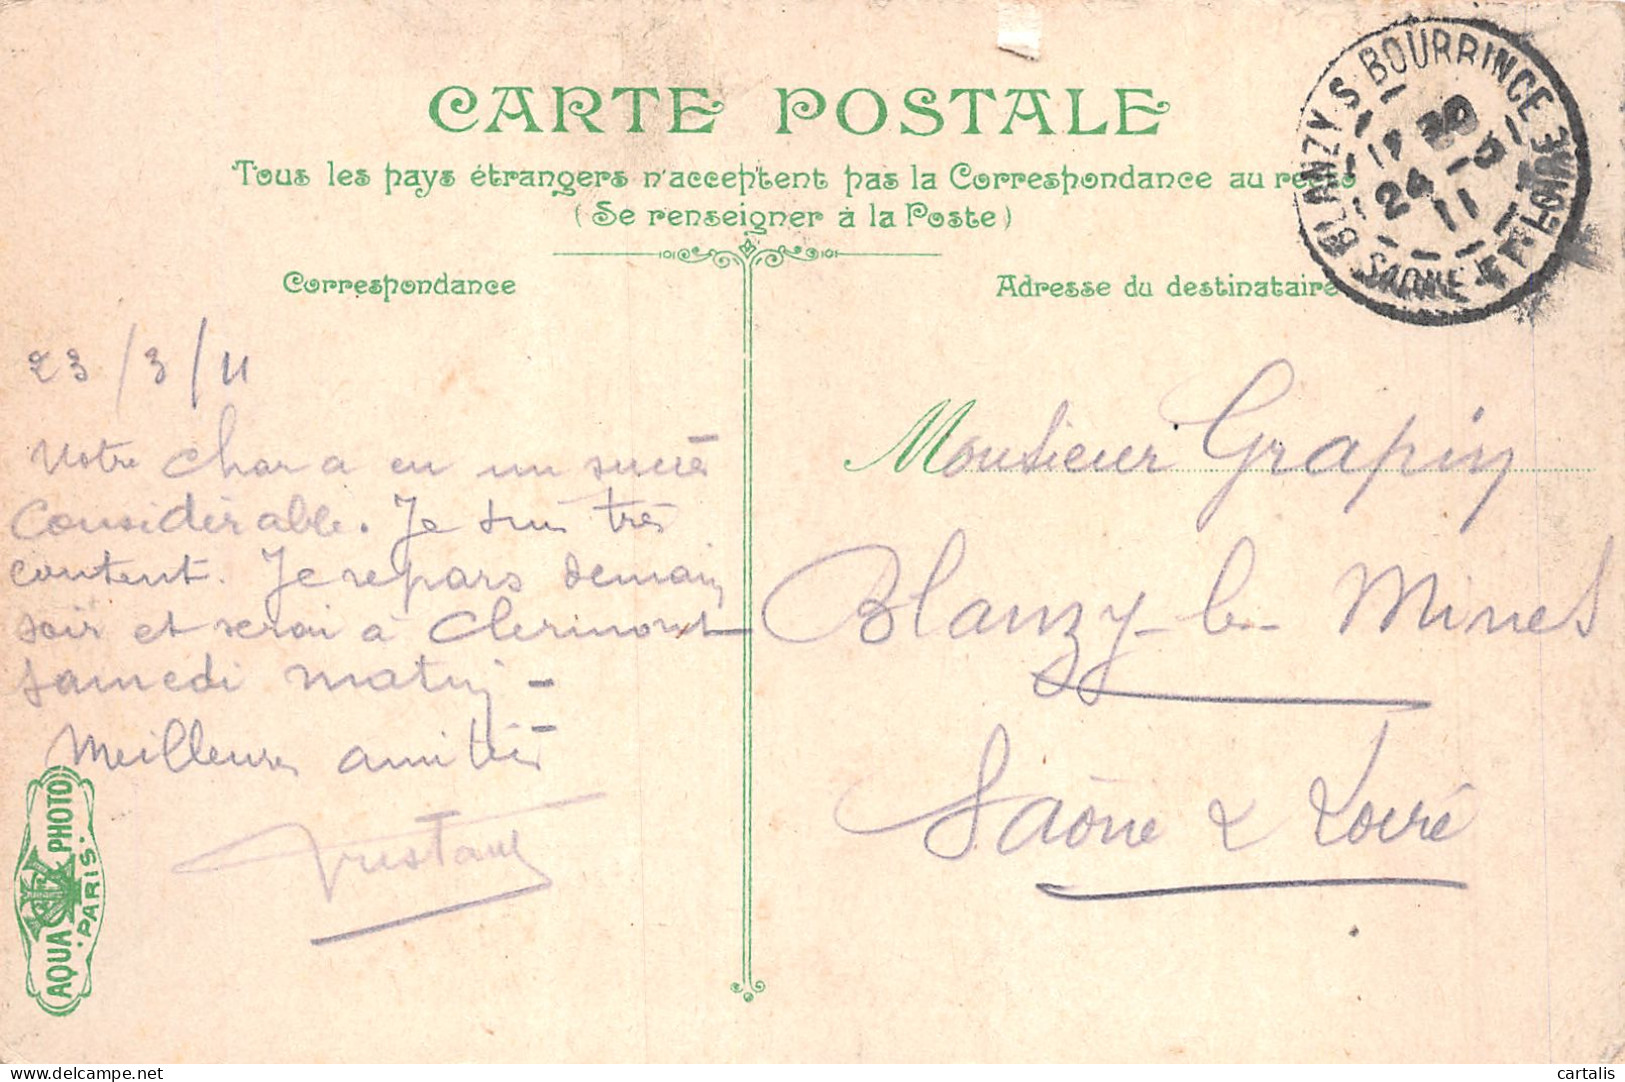 CARTE POSTALE
Tous les pays étrangers n'acceptent pas la Correspondance au recto
(Se renseigner à la Poste)
Correspondance
Adresse du destinataire
BLANZY S BOURBINCE
SAONE ET LOIRE
24 - 3
11
23/3/11
Votre char a eu un succès
Considérable. Je suis très
content. Je repars demain
soir et serai à Clermont
samedi matin -
Meilleures amitiés
Monsieur Grapin
Blanzy-les-Mines
Saône & Loire
AQUA PHOTO
PARIS
cartalis
delcampe.net